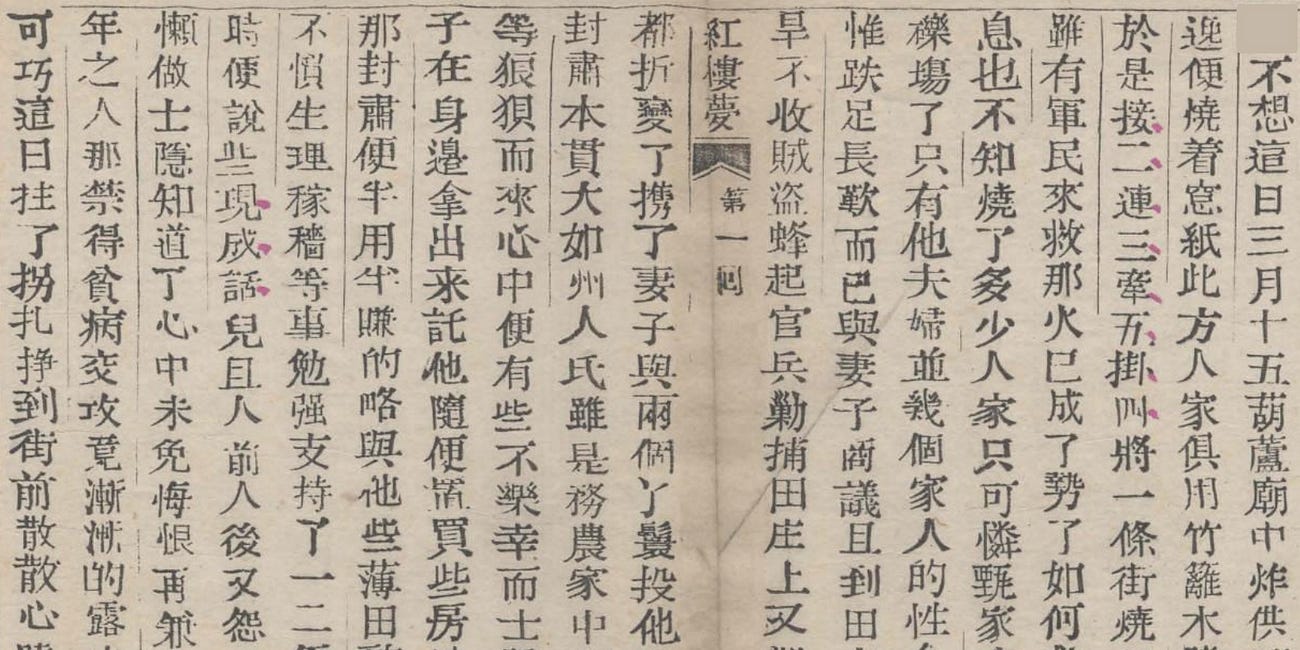 不想這日三月十五葫蘆廟中炸供
逸便燒着窓紙此方人家俱用竹籬木
於是接二連三牽五掛四將一條街燒
雖有軍民來救那火已成了勢了如何
息也不知燒了多少人家只可憐甄家
礫塲了只有他夫婦並幾個家人的性
惟跌足長歎而已與妻子商議且到田
旱不收賊盜蜂起官兵勦捕田庄上又
紅樓夢 第一囘
都折變了攜了妻子與兩個丫鬟投他
封肅本貫大如州人氏雖是務農家中
等狼狽而來心中便有些不樂幸而士
子在身邊拿出来託他隨便置買些房
那封肅便半用半賺的略與他些薄田
不慣生理稼穡等事勉强支持了一二
時便說些現成話兒且人前人後又怨
懶做士隱知道了心中未免悔恨再兼
年之人那禁得貧病交攻竟漸漸的露
可巧這日拄了拐扎掙到街前散散心